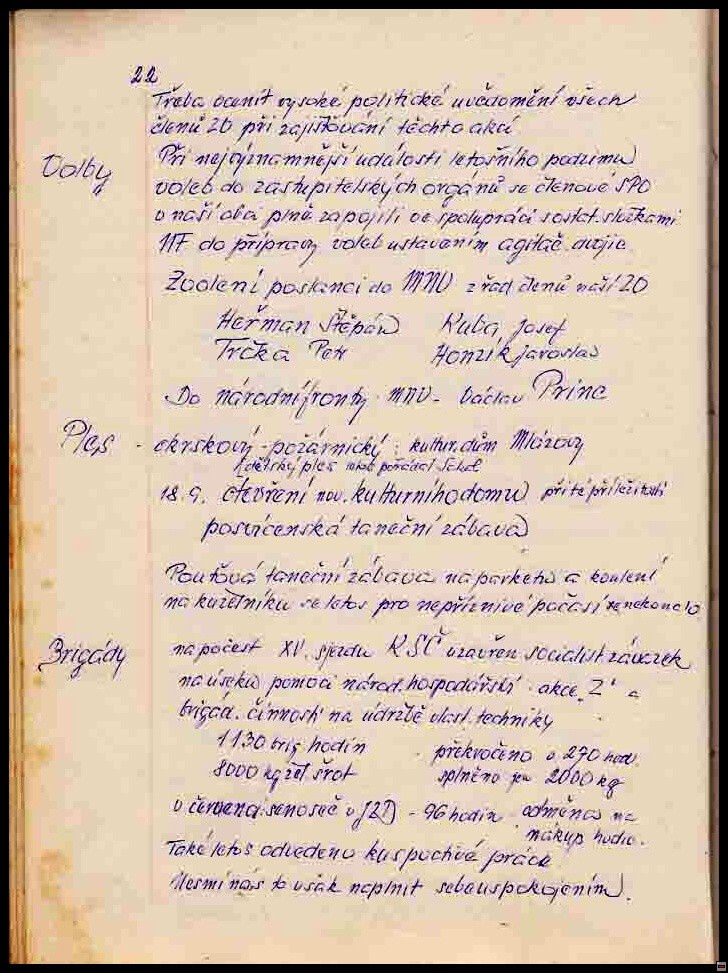 22
Třeba ocenit vysoké politické uvědomění všech
členů ZO při zajišťování těchto akcí
Volby
Při nejvýznamnější události letošního podzimu
voleb do zastupitelských orgánů se členové SPO
v naší obci plně zapojili ve spolupráci s ostat. složkami
NF do přípravy voleb ustavením agitač. dvojic.
Zvolení poslanci do MNV z řad členů naší ZO
Heřman Štěpán Kuba Josef
Trčka Petr Honzík Jaroslav
Do národní fronty MNV - Václav Princ
Ples - okrskový - požárnický : kultur. dům Mlázovy
(dětský ples pořádal Sokol
18. 9. otevření nov. kulturního domu při té příležitosti
posvícenská taneční zábava
Pouťová taneční zábava na parketu a koulení
na kuželníku se letos pro nepříznivé počasí nekonalo
Brigády
na počest XV. sjezdu KSČ uzavřen socialist. závazek
na úseku pomoci národ. hospodářství - akce "Z" a
brigád. činnosti na údržbě vlast. techniky
1130 brig hodin - překročeno o 270 hod.
8000 kg žel. šrot splněno jen 2000 kg
v červenci: senoseč v JZD - 96 hodin - odměna na
nákup hadic.
Také letos odvedeno kus poctivé práce
Nesmí nás to však naplnit sebeuspokojením.